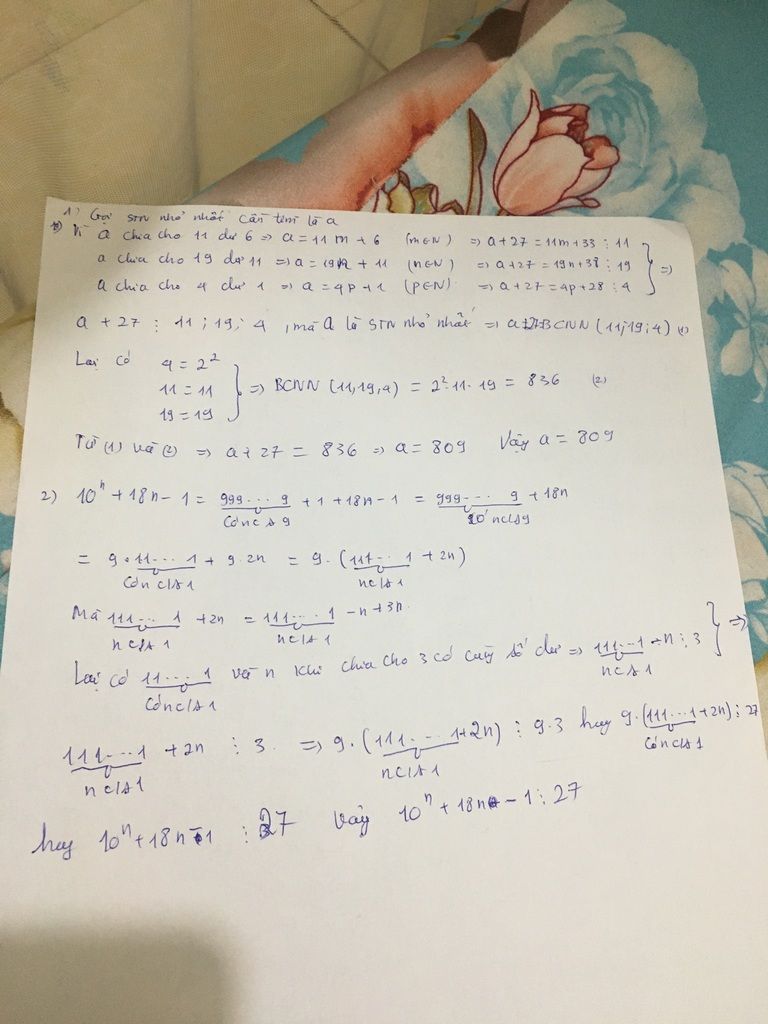 1) Gọi STN nhỏ nhất cần tìm là a
Vì a chia cho 11 dư 6 => a = 11m + 6 (m∈N) => a+27 = 11m+33 ⋮ 11
a chia cho 19 dư 11 => a = 19n + 11 (n∈N) => a+27 = 19n+38 ⋮ 19
a chia cho 4 dư 1 => a = 4p+1 (p∈N) => a+27 = 4p+28 ⋮ 4 } =>
a + 27 ⋮ 11 ; 19 ; 4 , mà a là STN nhỏ nhất => a+27=BCNN (11;19;4) (1)
Lại có 4 = 2²
11 = 11
19 = 19 } => BCNN (11,19,4) = 2².11.19 = 836 (2)
Từ (1) và (2) => a+27 = 836 => a = 809 Vậy a = 809
2) 10ⁿ + 18n - 1 = 999...9 + 1 + 18n - 1 = 999...9 + 18n
có n c/s 9 có n c/s 9
= 9.11...1 + 9.2n = 9.(111...1 + 2n)
có n c/s 1 n c/s 1
Mà 111...1 + 2n = 111...1 - n + 3n
n c/s 1 n c/s 1
Lại có 11...1 và n khi chia cho 3 có cùng số dư => 111...1 - n ⋮ 3 } =>
có n c/s 1 n c/s 1
111...1 + 2n ⋮ 3 => 9.(111...1+2n) ⋮ 9.3 hay 9.(111...1+2n) ⋮ 27
n c/s 1 n c/s 1 có n c/s 1
hay 10ⁿ + 18n - 1 ⋮ 27 Vậy 10ⁿ + 18n - 1 ⋮ 27